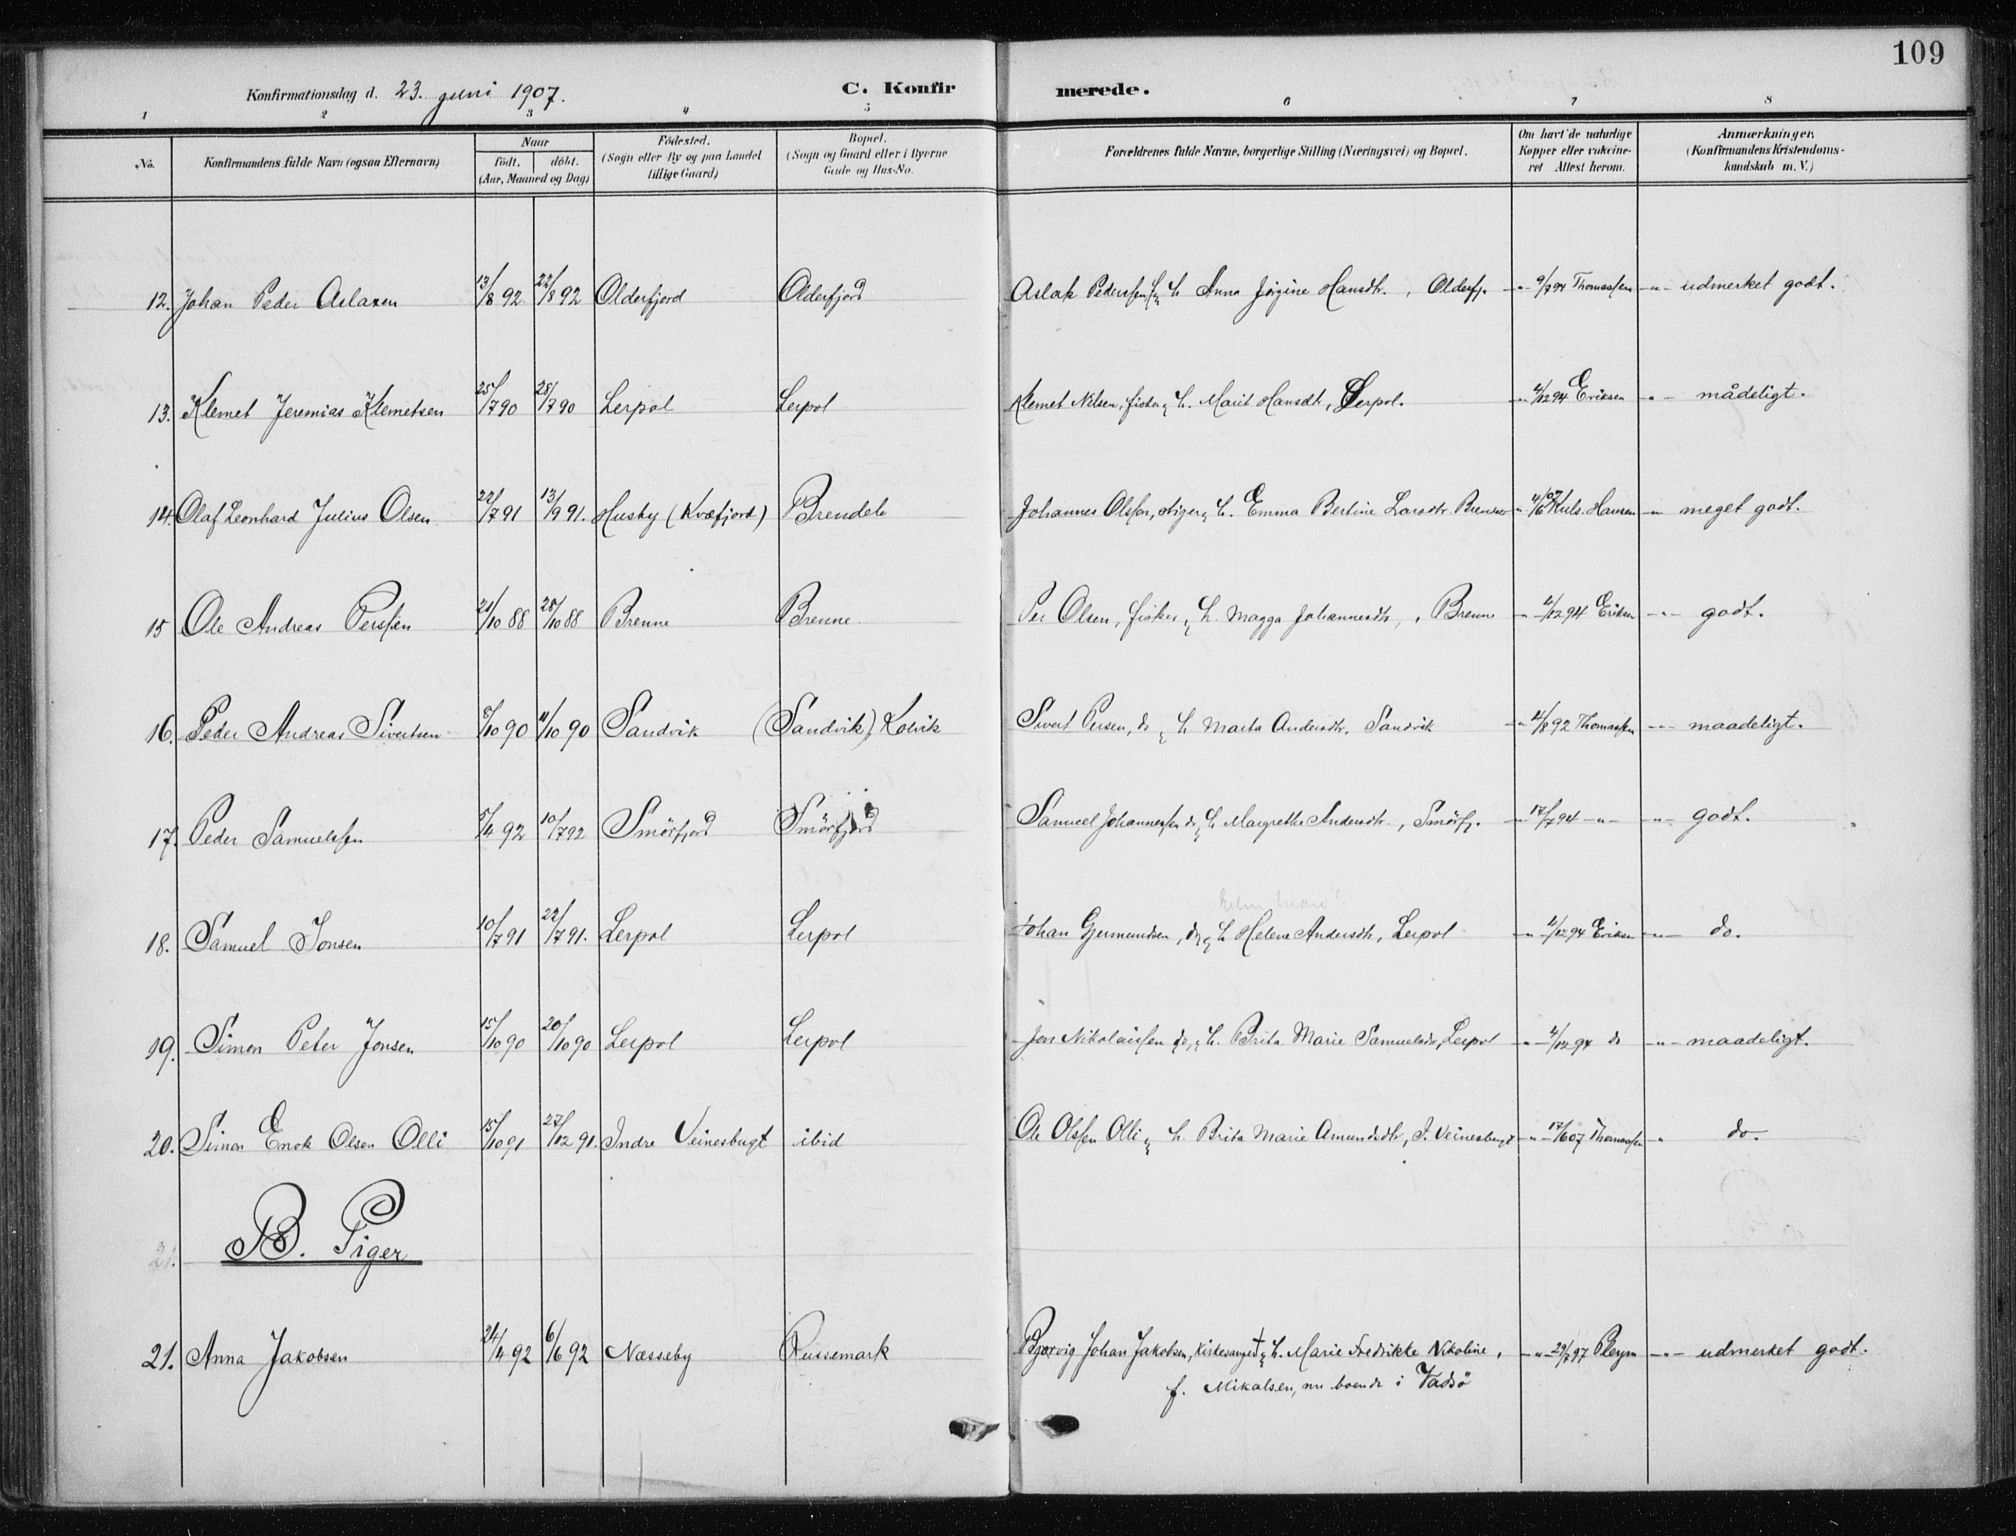 109
Konfirmationsdag d. 23. juni 1907. C. Konfirmerede.
1 2 3 4 5 6 7 8
No. Konfirmandens fulde Navn (ogsaa Efternavn) Naar født. døbt. (Aar, Maaned og Dag) Fødested. (Sogn eller By og paa Landet tillige Gaard) Bopæl. (Sogn og Gaard eller i Byerne Gade og Hus-No. Forældrenes fulde Navne, borgerlige Stilling (Næringsvei) og Bopæl. Om havt de naturlige Kopper eller vakcineret Attest herom. Anmærkninger. (Konfirmandens Kristendomskundskab m. V.)
12. Johan Peder Aslaxen 13/8 92 22/8 92 Olderfjord Olderfjord Aslak Pederssen, f. & h. Anna Jørgine Hansdtr. , Olderfj. -"- 9/7 94 Thomassen -"- udmerket godt.
13. Klemet Jeremias Klemetsen 25/7 90 28/7 90 Lerpol Lerpol Klemet Nilsen, fisker & h. Marit Hansdt, Lerpol. -"- 4/12 94 Eriksen -"- mådeligt.
14. Olaf Leonhard Julius Olsen 22/7 91 13/9 91. Husby (Kvæfjord) Johannes Olssen, & h. Emma Bertine Larsdtr " 4/6 07 Hansen " meget godt.
15 Ole Andreas Perssen 21/10 88 28/10 88 Brenne Brenne. Per Olsen, fisker, & h. Magga Johannesdtr, , Brenne -"- 4/12 94 Eriksen -"- godt.
16. Peder Andreas Sivertsen 8/10 90 11/10 90 Sandvik (Sandvik) Kolvik Sivert Persen, do & h. Marta Andersdtr, Sandvik -"- 4/8 92 Thomassen -"- maadeligt.
17. Peder Samuelssen 5/4 92 10/7 92 Smörfjord Smörfjord Samuel Johannessen do & h. Margrethe Andersdtr. , Smörfj. -"- 17/7 94 -"- -"- godt.
18. Samuel Jonsen 10/7 91 22/7 91. Lerpol Lerpol Johan Gjermundsen, do & h Helene Andersdtr, Lerpol -"- 4/12 94 Eriksen -"- do.
19. Simon Peter Jonsen 15/10 90 20/10 90 Lerpol Lerpol Jon Nikolaissen do, & h. Brita Marie Samuelsdr, Lerpol -"- 4/12 94 do -"- maadeligt.
20. Simon Enok Olsen Olli 15/10 91 27/12 91. Indre Veinesbugt ibid Ole Olssen Olli & h. Brita Marie Amundsdtr, I. Veinesbugt -"- 17/6 07 Thomassen " do.
21. B. Piger
21. Anna Jakobsen 24/4 92 6/6 92 Næsseby Russemark Johan Jakobsen, kirkesanger † & h. Marie Fredrikke Nikoline, -"- 29/7 97 Pleym -"- udmerket godt.
f. Mikalsen, nu boende i Vadsö